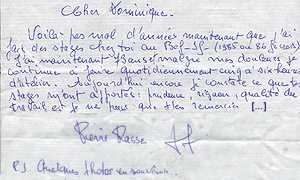 Cher Dominique.
Voilà pas mal d'années maintenant que j'ai
fait des stages chez toi au (1985 ou 86 je crois)
J'ai maintenant malgré mes douleurs je
continue à faire quotidiennement cinq à six heures
d'atelier. Aujourd'hui encore je constate ce que tes
stages m'ont apportés: prudence, rigueur, qualité du
travail et je ne peux que t'en remercier [...]
Pierre Passe
P.S Quelques photos en souvenir.